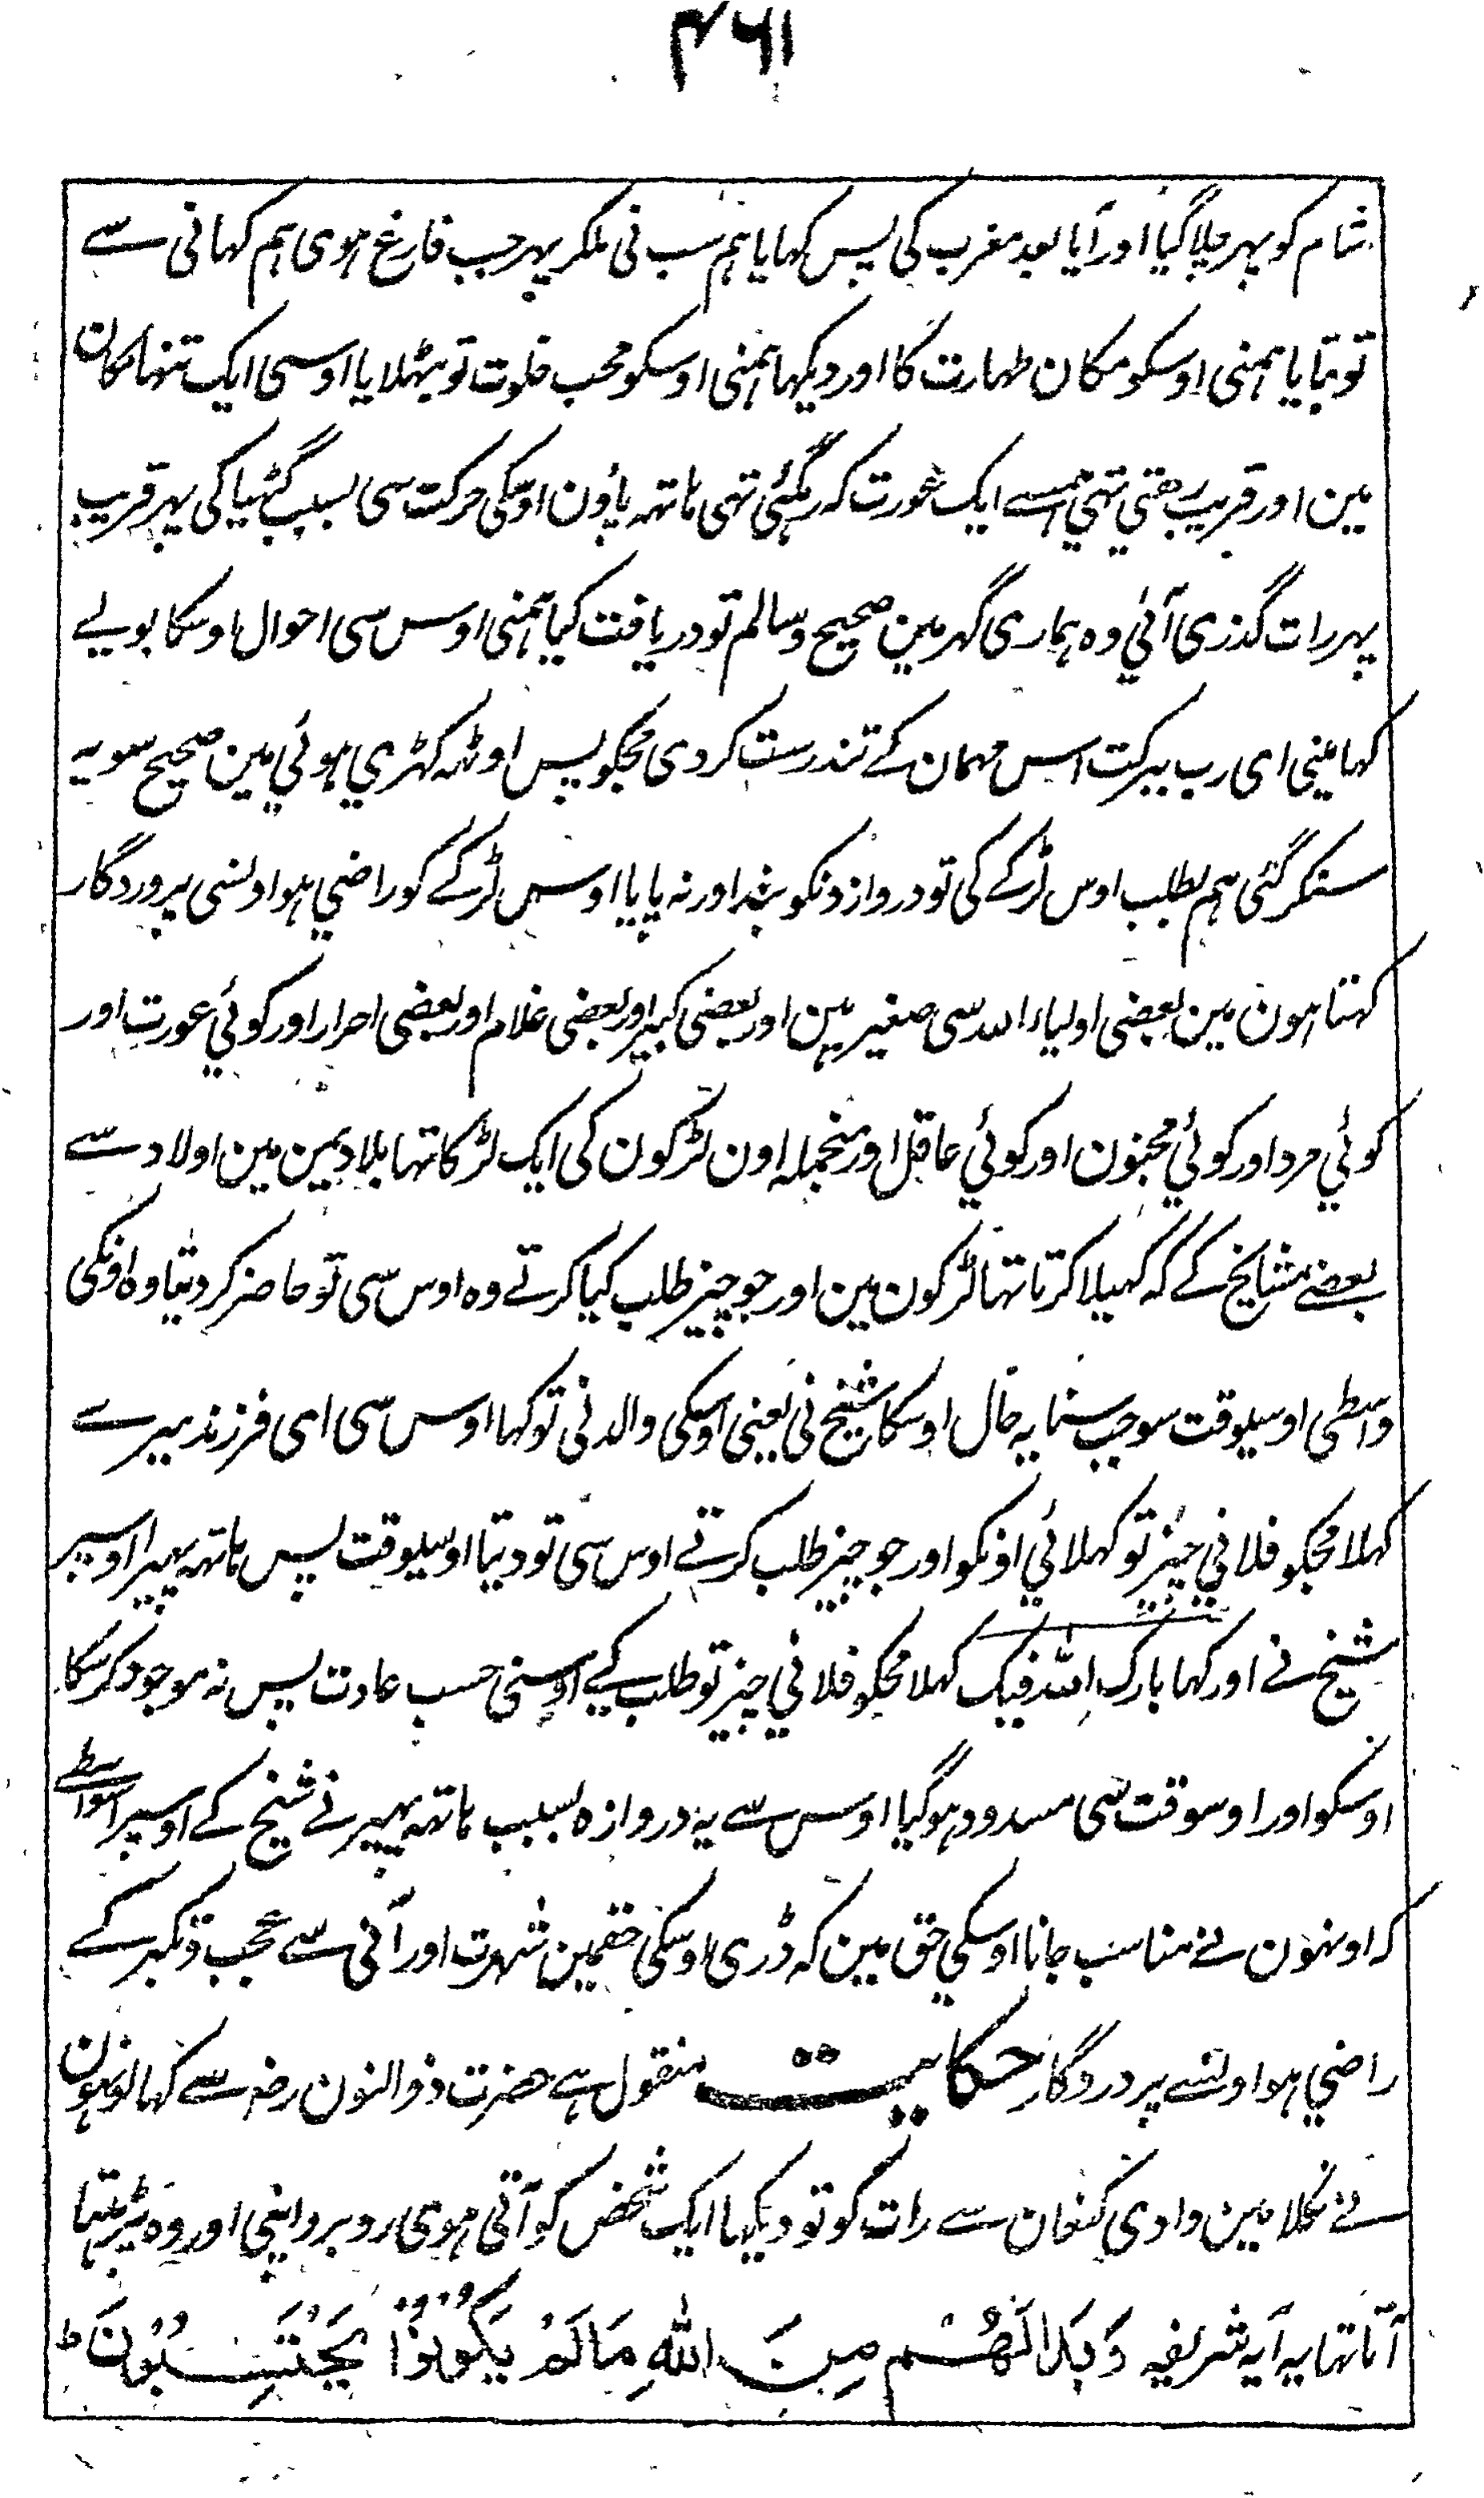 ۴۶۱
شام کو پہر چلا گیا اور آیا بعد مغرب کی پس کہایا ہم سب نی ملکر پہر جب فارغ ہوی ہم کہانی سے
تو بتایا ہمنی اوسکو مکان طہارت کا اور دیکہا ہمنی اوسکو محب خلوت تو بٹہلایا اوسی ایک تنہا مکان
مین اور قریب رہتی تہی ہمسے ایک عورت کہ رہگئی تہی ہاتہہ پاؤن اوسکی حرکت سی بسبب گٹہیا کی پہر قریب
پہر رات گذری آئی وہ ہماری گہر مین صحیح و سالم تو دریافت کیا ہمنی اوس سی احوال اوسکا بولے
کہا مینی ای رب ببرکت اس مہمان کے تندرست کر دی مجکو پس اوٹہہ کہڑی ہوئی مین صحیح سو یہ
سنکر گئی ہم بطلب اوس لڑکے کی تو دروازونکو بند اور نہ پایا اوس لڑکے کو راضی ہو اونسی پروردگار
کہتا ہون مین بعضی اولیاء اللہ سی صغیر ہین اور بعضی کبیر اور بعضی غلام اور بعضی احرار اور کوئی عورت اور
کوئی مرد اور کوئی مجنون اور کوئی عاقل اور منجملہ اون لڑکون کی ایک لڑکا تہا بلاد یمن مین اولاد سے
بعضے مشایخ کے کہ کہیلا کرتا تہا لڑکون مین اور جو چیز طلب کیا کرتے وہ اوس سی تو حاضر کر دیتا وہ اونکی
واسطی اوسیوقت سو جب سنا یہ حال اوسکا شیخ نی یعنی اوسکی والد نی تو کہا اوس سی ای فرزند میرے
کہلا مجکو فلانی چیز تو کہلائی اونکو اور جو چیز طلب کرتے اوس سی تو دیتا اوسیوقت پس ہاتہہ پہیرا اوسپر
شیخ نے اور کہا بارک اللہ فیک کہلا مجکو فلانی چیز تو طلب کیے اوسنی حسب عادت پس نہ موجود کر سکا
اوسکو اور اوسوقت سی مسدود ہو گیا اوس سے یہ دروازہ بسبب ہاتہہ پہیرنے شیخ کے اوسپر اسواسطے
کہ اونہون نے مناسب جانا اوسکی حق مین کہ ڈری اوسکی حقمین شہرت اور آنی سے عجب و تکبر کے
راضی ہو اونسے پروردگار حکایت منقول ہے حضرت ذوالنون رضہ سے کہا اونہون
نے نکلا مین وادی کنعان سے رات کو تو دیکہا ایک شخص کو آتی ہوی روبرو اپنی اور وہ پڑہتا
آتا تہا یہ آیہ شریفہ وَبَدَا لَهُم مِنَ اللهِ مَا لَمْ يَكُونُوا يَحْتَسِبُونَ ط